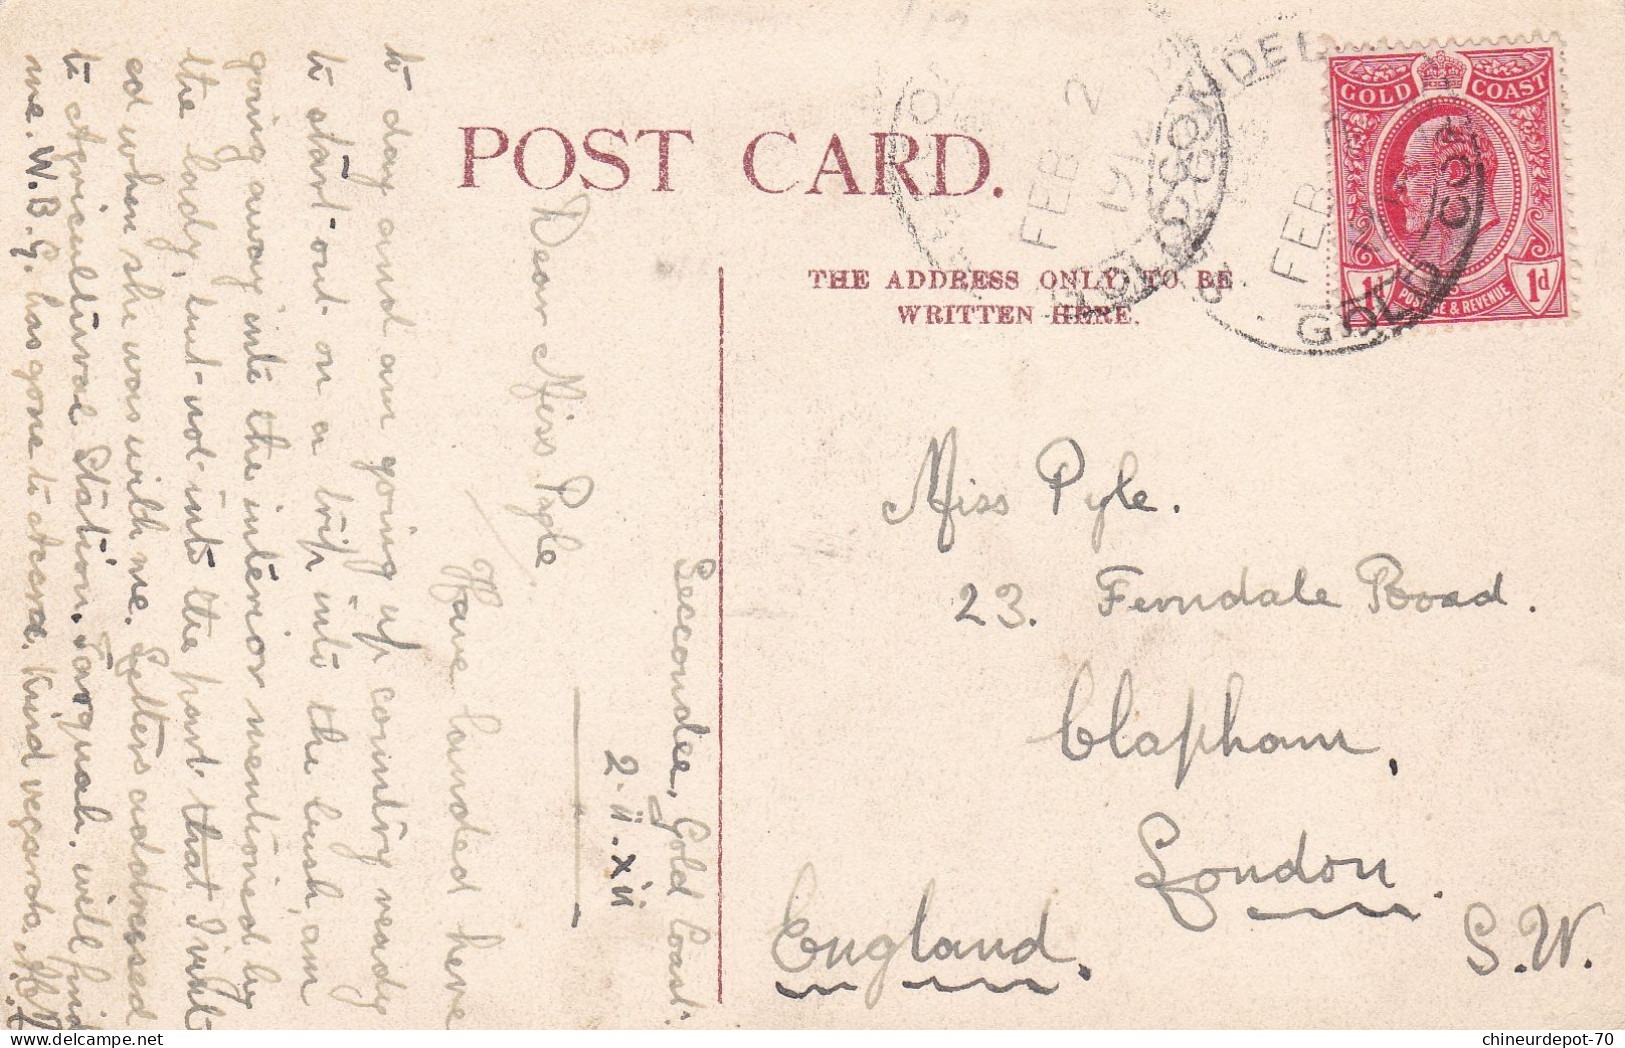 POST CARD.
THE ADDRESS ONLY TO BE
WRITTEN HERE.
GOLD COAST
1d 1d
POSTAGE & REVENUE
FEB 2
FEB
GOLD COAST
Seccondee, Gold Coast.
2.ii.xii
Dear Miss Pyle.
Have landed here
to day and am going up country ready
to start out on a trip into the bush, am
going away into the interior mentioned by
the lady, but not into the part that I
ed when she was with me. Letters addressed
to Agricultural Station. Tarquah. will find
me. W.B.G. has gone to Accra. Kind regards.
Miss Pyle.
23. Ferndale Road.
Clapham,
London.
S.W.
England.
chineurdepot-70